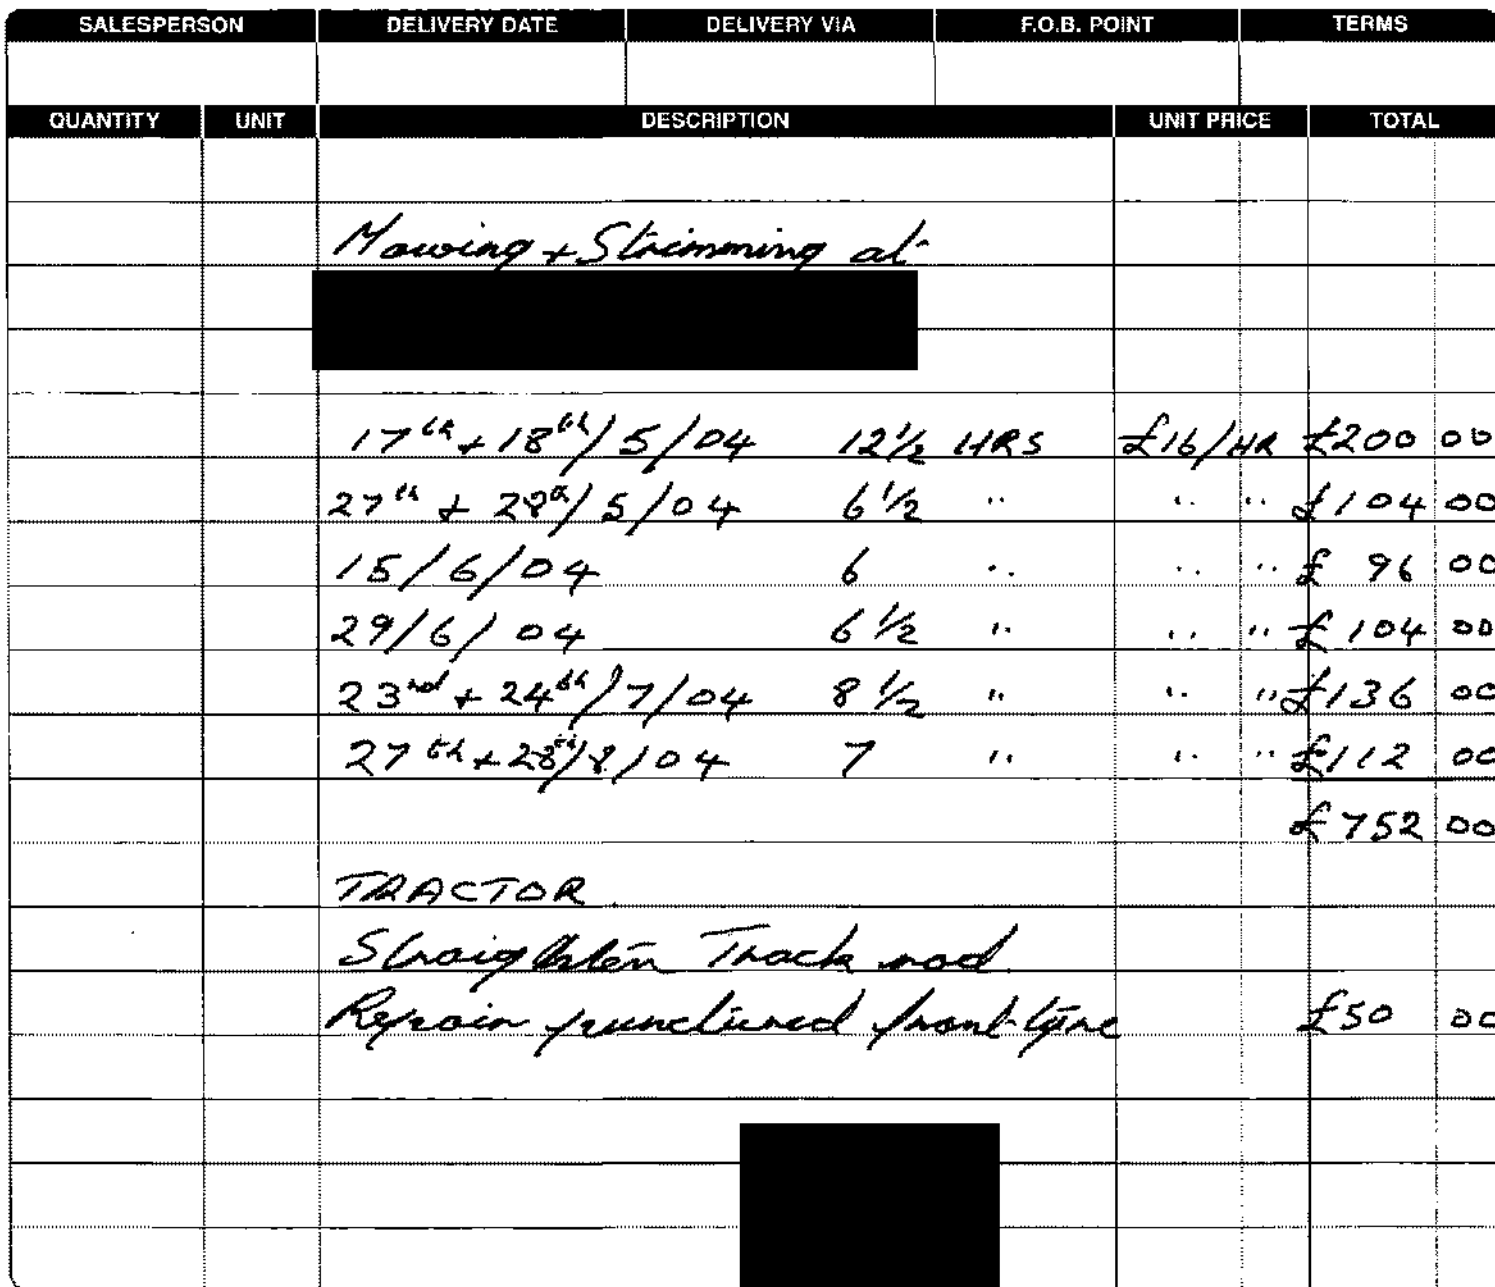 SALESPERSON DELIVERY DATE DELIVERY VIA F.O.B. POINT TERMS
QUANTITY UNIT DESCRIPTION UNIT PRICE TOTAL
Mowing + Strimming at
17th + 18th/5/04 12 1/2 HRS £16/HR £200 00
27th + 28th/5/04 6 1/2 " " " £104 00
15/6/04 6 " " " £ 96 00
29/6/04 6 1/2 " " " £104 00
23rd + 24th/7/04 8 1/2 " " " £136 00
27th + 28th/8/04 7 " " " £112 00
£752 00
TRACTOR
Straighten Track rod
Repair punctured front tyre £50 00